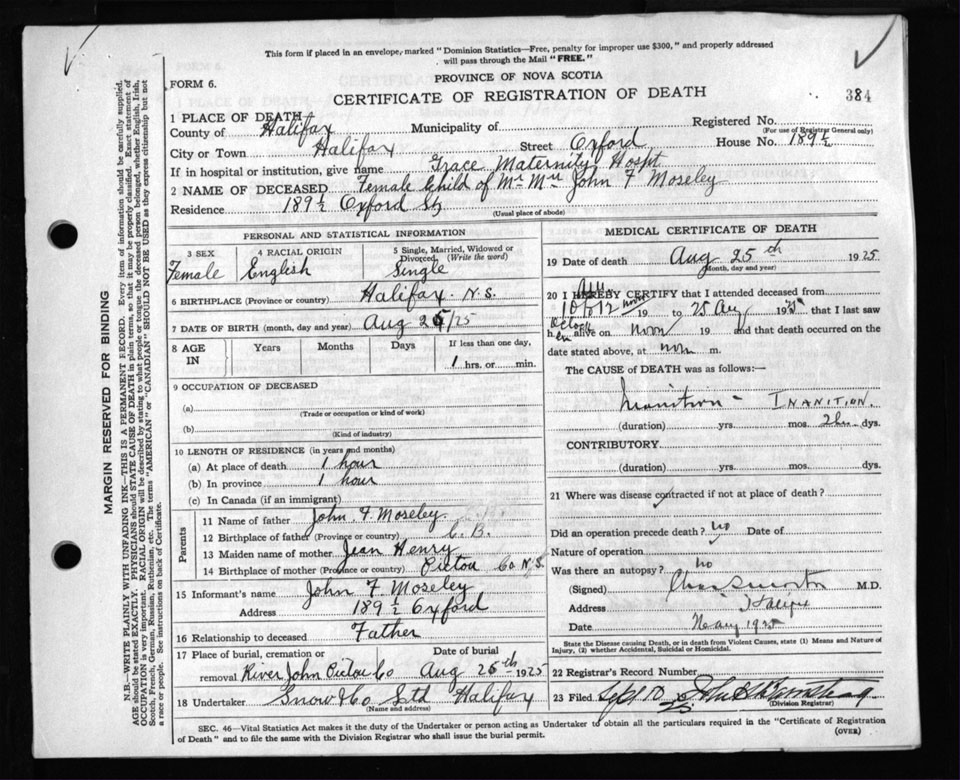 This form if placed in an envelope, marked "Dominion Statistics—Free, penalty for improper use $300," and properly addressed
will pass through the Mail "FREE."
PROVINCE OF NOVA SCOTIA
FORM 6.
CERTIFICATE OF REGISTRATION OF DEATH
384
1 PLACE OF DEATH
County of Halifax Municipality of Registered No.
(For use of Registrar General only)
City or Town Halifax Street Oxford House No. 189½
If in hospital or institution, give name Grace Maternity Hospt
2 NAME OF DECEASED Female Child of Mr Mrs John F Moseley
Residence 189½ Oxford St
(Usual place of abode)
PERSONAL AND STATISTICAL INFORMATION
3 SEX 4 RACIAL ORIGIN 5 Single, Married, Widowed or
Divorced (Write the word)
Female English Single
6 BIRTHPLACE (Province or country) Halifax. N.S.
7 DATE OF BIRTH (month, day and year) Aug 25/25
8 AGE IN Years Months Days If less than one day,
1 hrs. or min.
9 OCCUPATION OF DECEASED
(a)
(Trade or occupation or kind of work)
(b)
(Kind of industry)
10 LENGTH OF RESIDENCE (in years and months)
(a) At place of death 1 hour
(b) In province 1 hour
(c) In Canada (if an immigrant)
Parents
11 Name of father John F. Moseley
12 Birthplace of father (Province or country) C. B.
13 Maiden name of mother Jean Henry
14 Birthplace of mother (Province or country) Pictou Co N.S.
15 Informant's name John F Moseley
Address 189½ Oxford
16 Relationship to deceased Father
17 Place of burial, cremation or Date of burial
removal River John Pictou Co Aug 26th 1925
18 Undertaker Snow & Co Ltd Halifax
(Name and address)
MEDICAL CERTIFICATE OF DEATH
19 Date of death Aug 25th 1925
(Month, day and year)
20 I HEREBY CERTIFY that I attended deceased from
10 to 12 noon 19 to 25 Aug 1925 that I last saw
h er alive on noon 19 and that death occurred on the
date stated above, at noon m.
The CAUSE of DEATH was as follows:—
Inanition – INANITION.
(duration) yrs. mos. dys.
CONTRIBUTORY
(duration) yrs. mos. dys.
21 Where was disease contracted if not at place of death?
Did an operation precede death? no Date of
Nature of operation
Was there an autopsy? no
(Signed) M.D.
Address Halifax
Date 1925
State the Disease causing Death, or in death from Violent Causes, state (1) Means and Nature of
Injury, (2) whether Accidental, Suicidal or Homicidal.
22 Registrar's Record Number
23 Filed Sept 10
(Division Registrar)
SEC. 46—Vital Statistics Act makes it the duty of the Undertaker or person acting as Undertaker to obtain all the particulars required in the "Certificate of Registration
of Death" and to file the same with the Division Registrar who shall issue the burial permit.
(OVER)
MARGIN RESERVED FOR BINDING
N.B.—WRITE PLAINLY WITH UNFADING INK—THIS IS A PERMANENT RECORD. Every item of information should be carefully supplied.
AGE should be stated EXACTLY. PHYSICIANS should STATE CAUSE OF DEATH in plain terms, so that it may be properly classified. Exact statement of
OCCUPATION is very important. RACIAL ORIGIN will be described by stating to what people or tongue the deceased person belonged, whether English, Irish,
Scotch, French, German, Russian, Ruthenian, etc. The terms "AMERICAN" or "CANADIAN" SHOULD NOT BE USED as they express citizenship but not
a race or people. See instructions on back of Certificate.